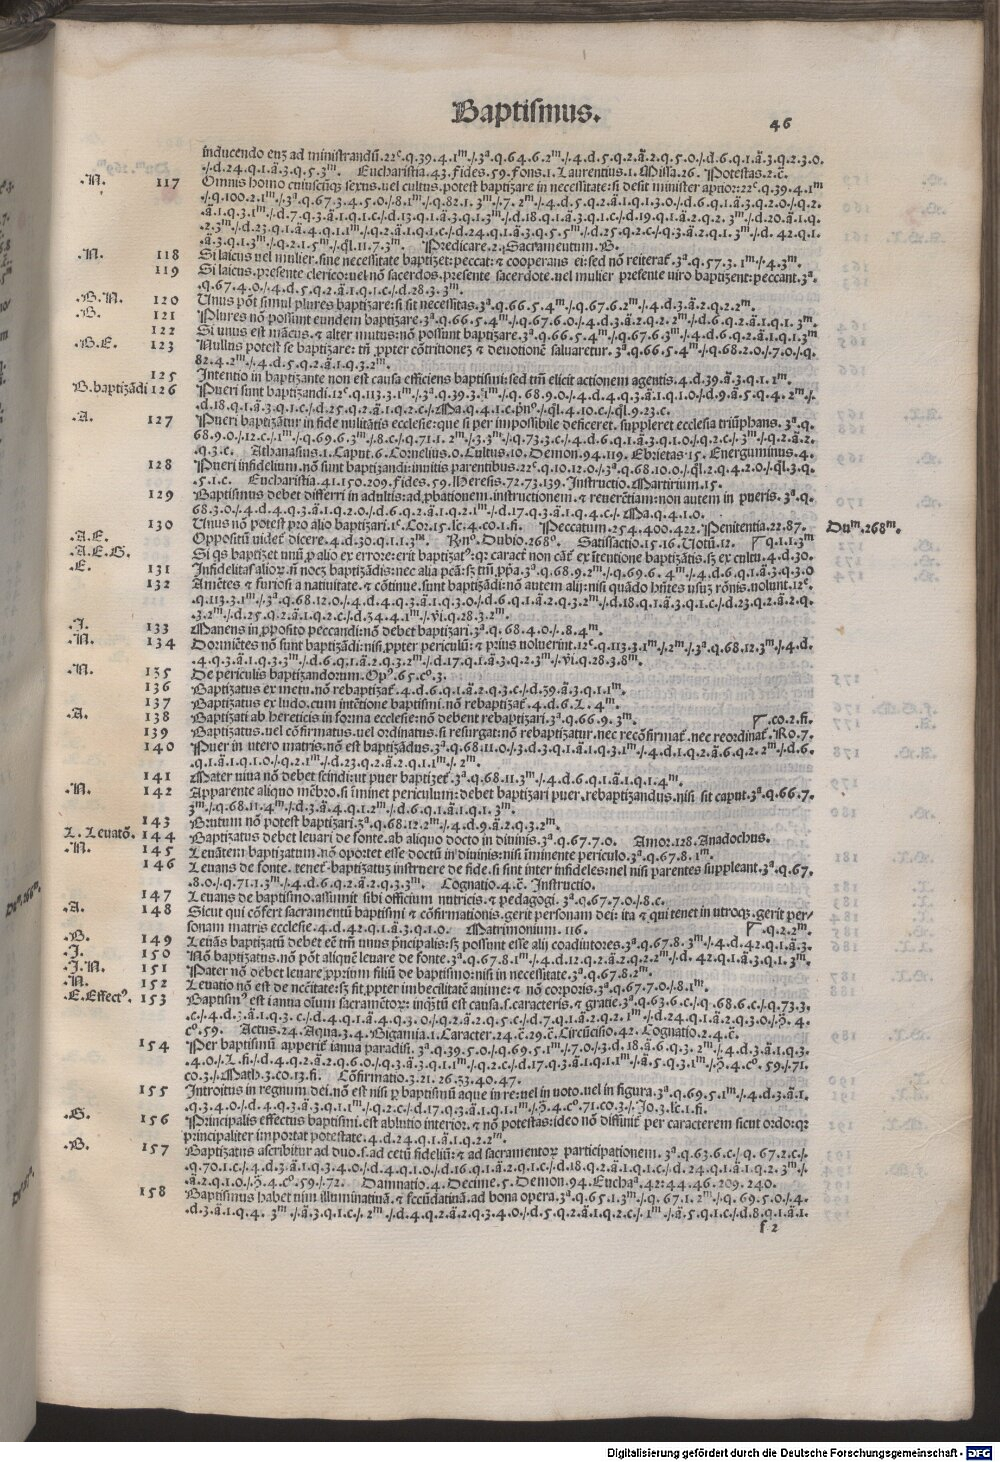 Baptismus.
46
inducendo enʒ ad ministrandū.22ᵉ.q.39.4.1ᵐ./.3ᵃ.q.64.6.2ᵐ./.4.d.5.q.2.ā.2.q.5.0./.d.6.q.1.ā.3.q.2.3.0.
./.d.24.q.1.ā.3.q.5.3ᵐ. Eucharistia.43.Fides.59.Fons.1.Laurentius.1.Missa.26. Potestas.2.c̄.
.N. 117 Omnis homo cuiuscūqʒ sexus.uel cultus.potest baptizare in necessitate:si desit minister aptior:22ᵉ.q.39.4.1ᵐ
./.q.100.2.1ᵐ./.3ᵃ.q.67.3.4.5.0./.8.1ᵐ./.q.82.1.3ᵐ./.7.2ᵐ./.4.d.5.q.2.ā.1.q.1.3.0./.d.6.q.1.ā.3.q.2.0./.q.2.
ā.1.q.3.1ᵐ./.d.7.q.3.ā.1.q.1.c./.d.13.q.1.ā.3.q.1.3ᵐ./.d.18.q.1.ā.3.q.1.c./.d.19.q.1.ā.2.q.2.3ᵐ./.d.20.ā.1.q.
.2.3ᵐ./.d.23.q.1.ā.4.q.1.1ᵐ./.q.2.ā.1.q.1.c./.d.24.q.1.ā.3.q.5.5ᵐ./.d.25.q.2.c./.q.3.ā.2.q.1.3ᵐ./.d.42.q.1.
ā.3.q.1.3ᵐ./.q.2.1.5ᵐ./.ql̄.11.7.3ᵐ. Predicare.2.Sacramentum.B.
.N. 118 Si laicus uel mulier.sine necessitate baptizet:peccat:⁊ cooperans ei:sed nō reiterat̄.3ᵃ.q.57.3.1ᵐ./.4.3ᵐ.
119 Si laicus.presente clerico:uel nō sacerdos.presente sacerdote.uel mulier presente uiro baptizent:peccant.3ᵃ.
.q.67.4.0./.4.d.5.q.2.ā.1.q.1.c./.d.28.3.3ᵐ.
.B.N. 120 Unus pōt simul plures baptizare:si sit necessitas.3ᵃ.q.66.5.4ᵐ./.q.67.6.2ᵐ./.4.d.3.ā.2.q.2.2ᵐ.
.B. 121 Plures nō possunt eundem baptizare.3ᵃ.q.66.5.4ᵐ./.q.67.6.0./.4.d.3.ā.2.q.2.2ᵐ./.d.6.q.2.ā.1.q.1.3ᵐ.
122 Si unus est māncus.⁊ alter mutus:nō possunt baptizare.3ᵃ.q.66.5.4ᵐ./.q.67.6.3ᵐ./.4.d.6.q.2.ā.1.q.1.3ᵐ
.B.E. 123 Nullus potest se baptizare:tn̄ ꝓpter cōtritioneʒ ⁊ deuotionē saluaretur.3ᵃ.q.66.5.4ᵐ./.q.68.2.0./.7.0./.q.
82.4.2ᵐ./.4.d.5.q.2.ā.1.q.3.2ᵐ.
125 Intentio in baptizante non est causa efficiens baptismi:sed tm̄ elicit actionem agentis.4.d.39.ā.3.q.1.1ᵐ.
.B.baptizādi 126 Pueri sunt baptizandi.12ᵉ.q.113.3.1ᵐ./.3ᵃ.q.39.3.1ᵐ./.q.68.9.0./.4.d.4.q.3.ā.1.q.1.0./.d.9.ā.5.q.4.2ᵐ./.
.d.18.q.1.ā.3.q.1.c./.d.25.q.2.ā.1.q.2.c./.Ma.q.4.1.c.p̄n°./.ql̄.4.10.c./.ql̄.9.23.c.
.A. 127 Pueri baptizātur in fide militātis ecclesie:que si per impossibile deficeret.suppleret ecclesia triūphans.3ᵃ.q.
68.9.0./.12.c./.1ᵐ./.q.69.6.3ᵐ./.8.c./.q.71.1.2ᵐ./.3.3ᵐ./.q.73.3.c./.4.d.6.q.1.ā.3.q.1.0./.q.2.c./.3ᵐ./.q.2.ā.2.
.q.3.c. Athanasius.1.Caput.6.Cornelius.0.Cultus.10.Demon.94.119.Ebrietas.15.Energuminus.4.
128 Pueri infidelium.nō sunt baptizandi:inuitis parentibus.22ᵉ.q.10.12.0./.3ᵃ.q.68.10.0./.ql̄.2.q.4.2.0./.ql̄.3.q.
.5.1.c. Eucharistia.41.150.209.Fides.59.Heresis.72.73.139.Instructio.Martirium.15.
129 Baptismus debet differri in adultis:ad ꝓbationem.instructionem.⁊ reuerētiam:non autem in pueris.3ᵃ.q.
68.3.0./.4.d.4.q.3.ā.1.q.2.0./.d.6.q.1.ā.2.q.2.1ᵐ./.d.17.q.3.ā.1.q.4.c./.Ma.q.4.1.0.
130 Unus nō potest pro alio baptizari.1ᵉ.Cor.15.lc.4.co.1.fi. Peccatum.254.400.422.Penitentia.22.87. Duᵐ.268ᵐ.
.A.E. Oppositū uidet̄ dicere.4.d.30.q.1.1.3ᵐ. Rn°.Dubio.268°. Satisfactio.15.16.Uotū.12. .q.1.1.3ᵐ
.A.E.G. Si qs baptizet unū ꝑ alio ex errore:erit baptizat°:qꝛ caract̄ non cāt̄ ex ītentione baptizātis.sʒ ex cultu.4.d.30.
.E. 131 Infidelitas alioꝝ.si noceʒ baptizādis:nec alia pcā:sʒ tm̄ ꝓpa.3ᵃ.q.68.9.2ᵐ./.q.69.6.4ᵐ./.4.d.6.q.1.ā.3.q.3.0
132 Amētes ⁊ furiosi a natiuitate.⁊ cōtinue.sunt baptizādi:nō autem alij:nisi quādo hn̄tes usuʒ rōnis.nolunt.12ᵉ.
.q.113.3.1ᵐ./.3ᵃ.q.68.12.0./.4.d.4.q.3.ā.1.q.3.0./.d.6.q.1.ā.2.q.3.2ᵐ./.d.18.q.1.ā.3.q.1.c./.d.23.q.2.ā.2.q.
.3.2ᵐ./.d.25.q.2.ā.1.q.2.c./.d.34.4.1ᵐ./.Vi.q.28.3.2ᵐ.
.I. 133 Manens in ꝓposito peccandi:nō debet baptizari.3ᵃ.q.68.4.0./.8.4ᵐ.
.N. 134 Dormiētes nō sunt baptizādi:nisi ꝓpter periculū:⁊ prius uoluerint.12ᵉ.q.113.3.1ᵐ./.2ᵐ./.3ᵃ.q.68.12.3ᵐ./.4.d.
.4.q.3.ā.1.q.3.3ᵐ./.d.6.q.1.ā.2.q.3.2ᵐ./.d.17.q.1.ā.3.q.2.3ᵐ./.Vi.q.28.3.8ᵐ.
.N. 135 De periculis baptizandorum.Op°.65.c°.3.
136 Baptizatus ex metu.nō rebaptizat̄.4.d.6.q.1.ā.2.q.3.c./.d.39.ā.3.q.1.1ᵐ.
137 Baptizatus ex ludo.cum intētione baptismi.nō rebaptizat̄.4.d.6.L.4ᵐ.
.A. 138 Baptizati ab hereticis in forma ecclesie:nō debent rebaptizari.3ᵃ.q.66.9.3ᵐ. .co.2.fi.
139 Baptizatus.uel cōfirmatus.uel ordinatus.si resurgat:nō rebaptizatur.nec recōfirmat̄.nec reordinat̄.Ro.7.
140 Puer in utero matris.nō est baptizādus.3ᵃ.q.68.11.0./.3.d.3.q.1.ā.1.q.3.1ᵐ./.4.d.1.q.2.ā.6.q.2.2ᵐ./.d.6.
.q.1.ā.1.q.1.0./.q.2.1ᵐ./.d.23.q.2.ā.2.q.1.1ᵐ./.2ᵐ.
141 Mater uiua nō debet scindi:ut puer baptizet̄.3ᵃ.q.68.11.3ᵐ./.4.d.6.q.1.ā.1.q.1.4ᵐ.
.N. 142 Apparente aliquo mēbro.si īminet periculum:debet baptizari puer.rebaptizandus.nisi sit caput.3ᵃ.q.66.7.
3ᵐ./.q.68.11.4ᵐ./.d.3.ā.4.q.1.2ᵐ./.d.6.q.1.ā.1.q.1.3ᵐ.
143 Brutum nō potest baptizari.3ᵃ.q.68.12.2ᵐ./.4.d.9.ā.2.q.3.2ᵐ.
.L.Leuatō. 144 Baptizatus debet leuari de fonte.ab aliquo docto in diuinis.3ᵃ.q.67.7.0. Amor.128.Anadochus.
.N. 145 Leuātem baptizatum.nō oportet esse doctū in diuinis:nisi īminente periculo.3ᵃ.q.67.8.1ᵐ.
146 Leuans de fonte.tenet̄.baptizatuʒ instruere de fide.si sint inter infideles:nel nisi parentes suppleant.3ᵃ.q.67.
.8.0./.q.71.1.3ᵐ./.4.d.6.q.2.ā.2.q.3.3ᵐ. Cognatio.4.c̄.Instructio.
147 Leuans de baptismo.assumit sibi officium nutricis.⁊ pedagogi.3ᵃ.q.67.7.0./.8.c.
.A. 148 Sicut qui cōfert sacramentū baptismi ⁊ cōfirmationis.gerit personam dei:ita ⁊ qui tenet in utroqʒ.gerit per/
sonam matris ecclesie.4.d.42.q.1.ā.3.q.1.0. Matrimonium.116. .q.2.2ᵐ.
.B. 149 Leuās baptizatū debet eē tm̄ unus p̄ncipalis:sʒ possunt esse alij coadiutores.3ᵃ.q.67.8.3ᵐ./.4.d.42.q.1.ā.3.
.I. 150 Nō baptizatus.nō pōt aliquē leuare de fonte.3ᵃ.q.67.8.1ᵐ./.4.d.12.q.2.ā.2.q.2.2ᵐ./.d.42.q.1.ā.3.q.1.3ᵐ.
.I.N. 151 Pater nō debet leuare ꝓprium filiū de baptismo:nisi in necessitate.3ᵃ.q.67.8.2ᵐ.
.N. 152 Leuatio nō est de nccitate:sʒ fit ꝓpter imbecilitatē anime:⁊ nō corporis.3ᵃ.q.67.7.0./.8.1ᵐ.
.E.Effect°. 153 Baptism° est ianua oīum sacramētoꝝ:inqʒtū est causa.s.caracteris.⁊ gratie.3ᵃ.q.63.6.c./.q.68.6.c./.q.73.3.
.c./.4.d.3.ā.1.q.3.c./.d.4.q.1.ā.4.q.3.0./.q.2.ā.2.q.5.c./.d.7.q.1.ā.2.q.2.1ᵐ./.d.24.q.1.ā.2.q.3.0./.p̄.4.
c°.59. Actus.24.Aqua.3.4.Bigamia.1.Caracter.24.c̄.29.c̄.Circūcisio.42.Cognatio.2.4.c̄.
154 Per baptismū apperit̄ ianua paradisi.3ᵃ.q.39.5.0./.q.69.5.1ᵐ./.7.0./.3.d.18.ā.6.q.3.2ᵐ./.4.d.3.ā.1.q.3.
.4.0./.L.fi./.d.4.q.2.ā.2.q.6.0./.q.3.ā.3.q.1.1ᵐ./.q.2.c./.d.17.q.3.ā.1.q.1.1ᵐ./.ā.5.q.3.1ᵐ./.p̄.4.c°.59./.71.
co.3./.Math.3.co.13.fi. Cōfirmatio.3.21.26.33.40.47.
155 Introitus in regnum dei.nō est nisi ꝑ baptismū aque in re:uel in uoto.uel in figura.3ᵃ.q.69.5.1ᵐ./.4.d.3.ā.1.
.q.3.4.0./.d.4.q.3.ā.3.q.1.1ᵐ./.q.2.c./.d.17.q.3.ā.1.q.1.1ᵐ./.p̄.4.c°.71.co.3./.Jo.3.lc.1.fi.
.G. 156 Principalis effectus baptismi.est ablutio interior.⁊ nō potestas:ideo nō diffinit̄ per caracterem sicut ordo:qꝛ
principaliter importat potestatē.4.d.24.q.1.ā.1.q.2.2ᵐ.
.B. 157 Baptizatus ascribitur ad duo.s.ad cetū fideliū:⁊ ad sacramentoꝝ participationem.3ᵃ.q.63.6.c./.q.67.2.c./.
.q.70.1.c./.4.d.3.ā.1.q.3.4.0./.d.4.q.1.0./.d.16.q.1.ā.2.q.1.c./.d.18.q.2.ā.1.q.1.c./.d.24.q.1.ā.1.q.2.3ᵐ./.
ā.2.q.1.0./.p̄.4.c°.59./.72. Damnatio.4.Decime.5.Demon.94.Euchaᵃ.42.44.46.209.240.
158 Baptismus habet uim illuminatiuā.⁊ fecūdatiuā.ad bona opera.3ᵃ.q.65.1.3ᵐ./.q.67.1.2ᵐ./.q.69.5.0./.4.
.d.3.ā.1.q.4.3ᵐ./.ā.3.q.1.c./.2ᵐ./.d.4.q.2.ā.2.q.3.4.0./.d.5.q.2.ā.1.q.2.c./.1ᵐ./.ā.5.q.1.c./.d.8.q.1.ā.1.
f 2
Digitalisierung gefördert durch die Deutsche Forschungsgemeinschaft - DFG